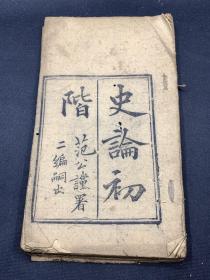 史論初
階
范公諲署
二編嗣出